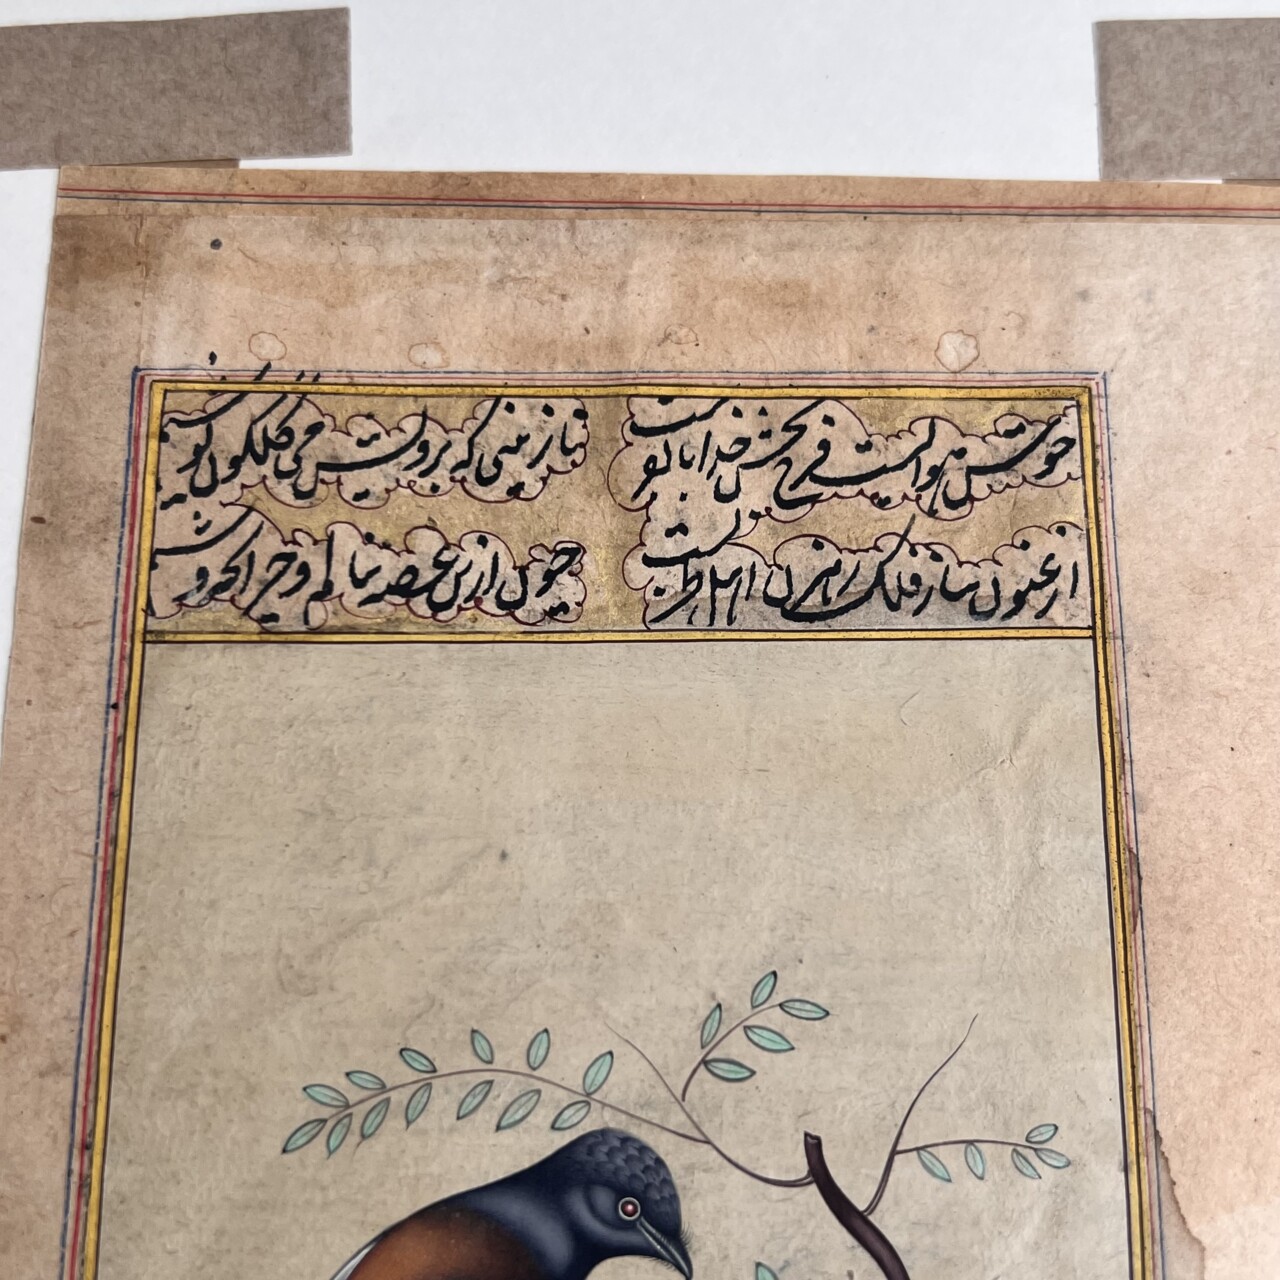 خوش هوایست فرح بخش خدایا بفرست نازنینی که برویش می گلگون نوشیم
ارغنون ساز فلک رهزن اهل هنرست چون ازین غصه ننالیم و چرا نخروشیم